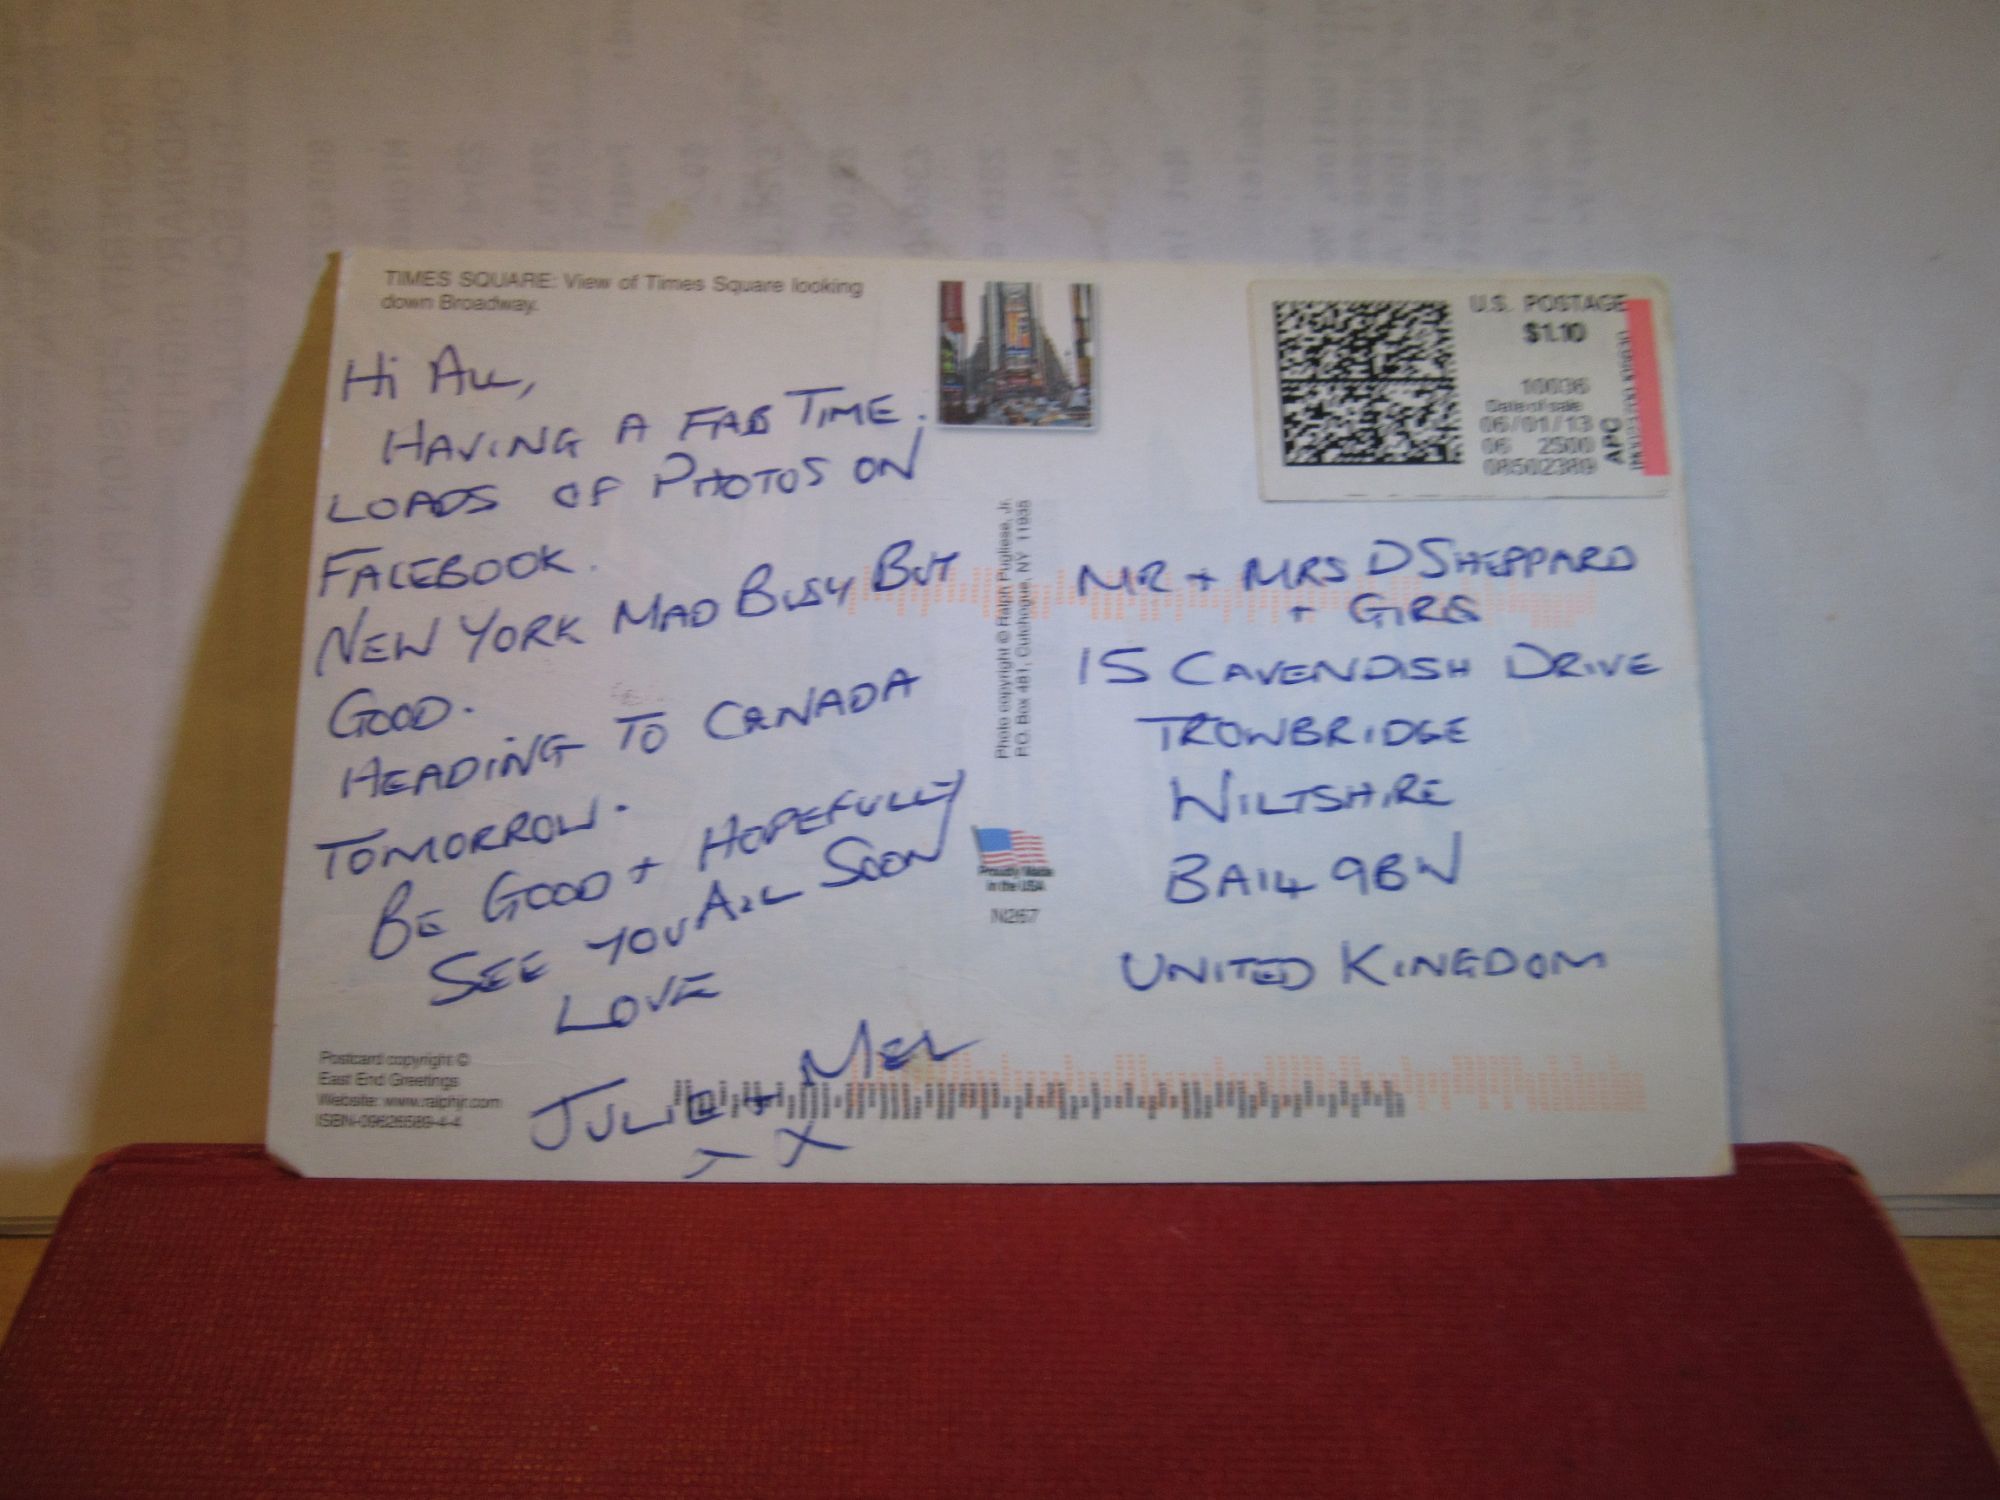 TIMES SQUARE: View of Times Square looking
down Broadway.
Hi ALL,
HAVING A FAB TIME.
LOADS OF PHOTOS ON
FACEBOOK.
NEW YORK MAD BUSY BUT
GOOD.
HEADING TO CANADA
TOMORROW.
BE GOOD + HOPEFULLY
SEE YOU ALL SOON
LOVE
JULIE + MEL
X X
Postcard copyright ©
East End Greetings
Website: www.ralphjr.com
ISBN-09626589-4-4
Photo copyright © Ralph Pugliese, Jr.
P.O. Box 481, Cutchogue, NY 11935
Proudly Made
in the USA
N267
U.S. POSTAGE
$1.10
10036
Date of sale
06/01/13
06 2500
08502389
APC
MR + MRS D SHEPPARD
+ GIRLS
15 CAVENDISH DRIVE
TROWBRIDGE
WILTSHIRE
BA14 9BW
UNITED KINGDOM